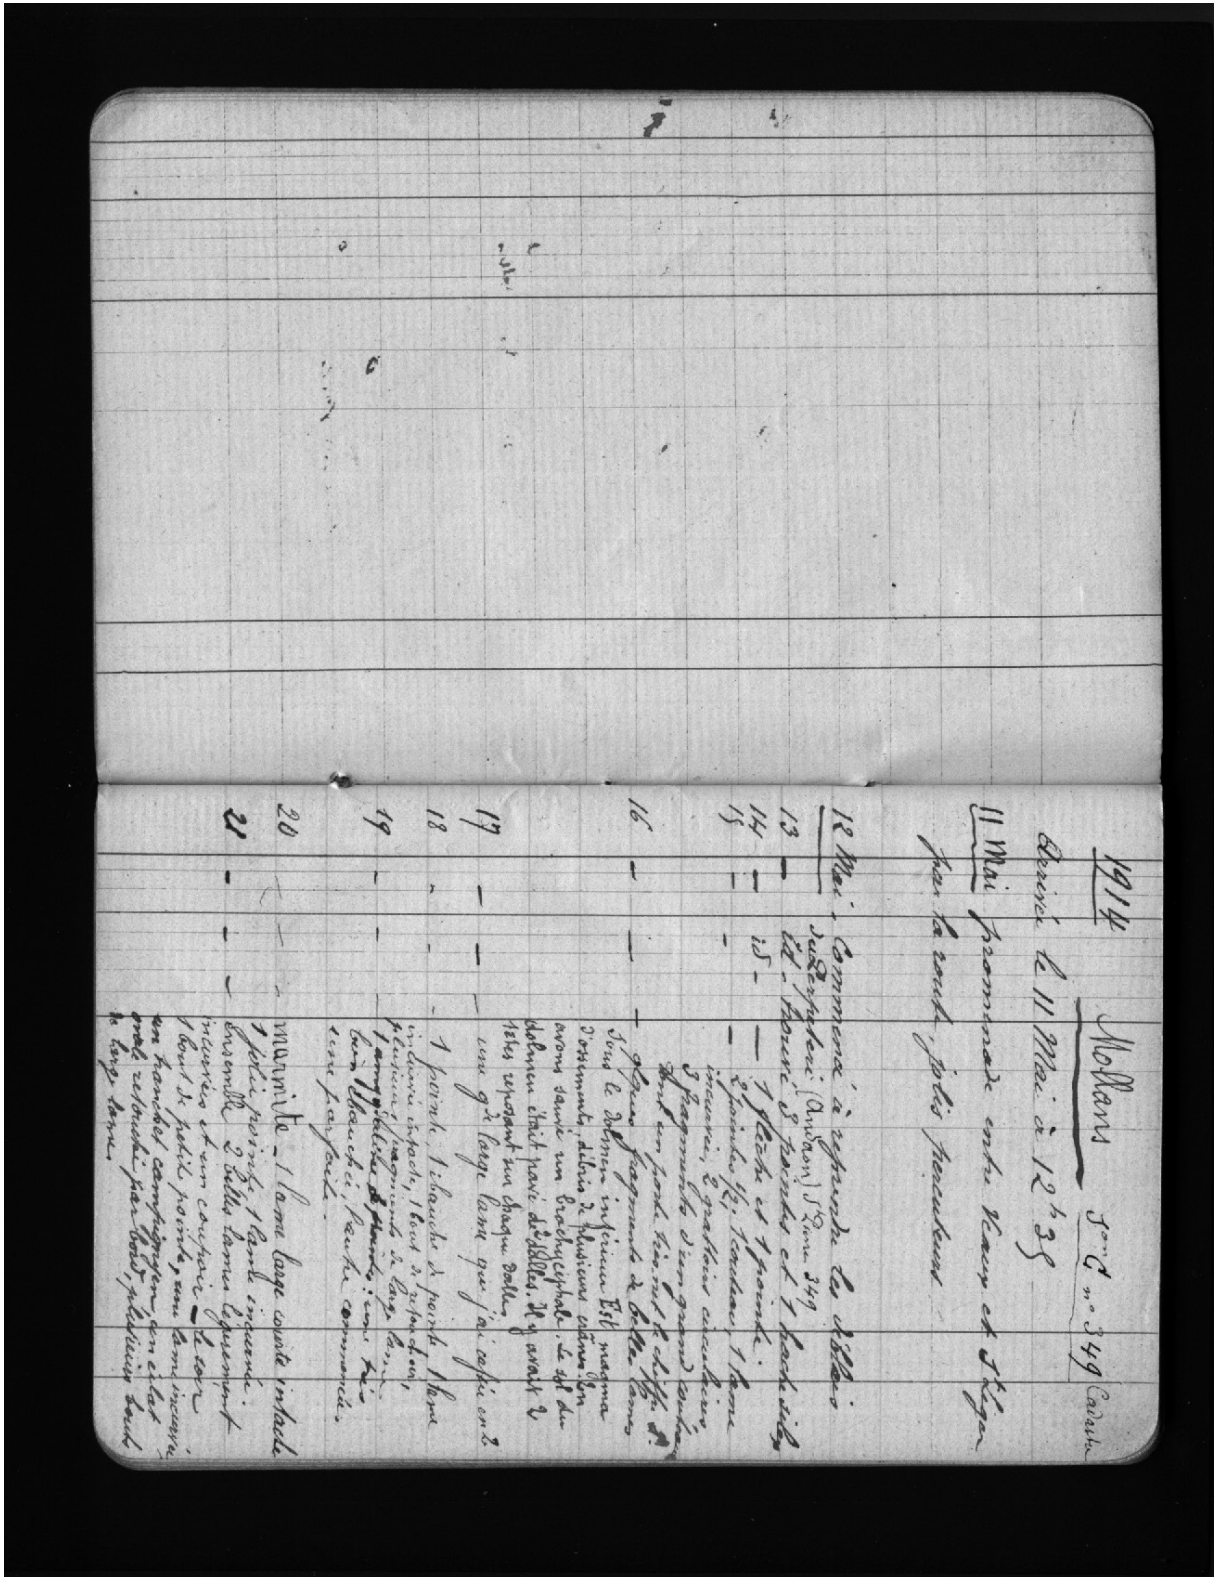 1914 Mollans Son C n° 349 Cadastre
Arrivé le 11 Mai à 12h 35
11 Mai promenade entre Veaux et St Léger
par la route, jolis percuteurs
12 Mai. Commencé à reprendre les déblais
du (Andaon) 349
13 — id - trouvé 3 pointes et 1 hache silex
14 — id - — 1 flèche et 1 pointe.
15 — - — 2 pointes 1/2, 1 couteau, 1 lame
incurvée, 2 grattoirs circulaires
3 fragments d'un grand
16 — — — qlques fragments de belles lames
dont un porte le chiffre 8.
Sous le dolmen inférieur Est magma
d'ossements, débris de plusieurs crânes. On
avons sauvé un brachycéphale. Le sol du
dolmen était pavé de dalles. Il y avait 2
têtes reposant sur chaque dalles
17 — — — une gde large lame que j'ai cassée en 2
18 - - - 1 pointe, 1 ébauche de pointe 1 lame
incurvée intacte, 1 bout de
plusieurs fragments de large lame
19 - - - une très
bien ébauchée, l'autre commencée.
une parfaite.
20 - - - marmite - 1 lame large courte intacte
1 jolie pointe, 1 lame incurvée.
21 - - - ensemble 2 belles lames légèrement
incurvées et un coupoir — le soir
1 bout de petite pointe, une lame incurvée
un tranchet campignyen, un éclat
ovale retouché par bord, plusieurs bouts
de large lame